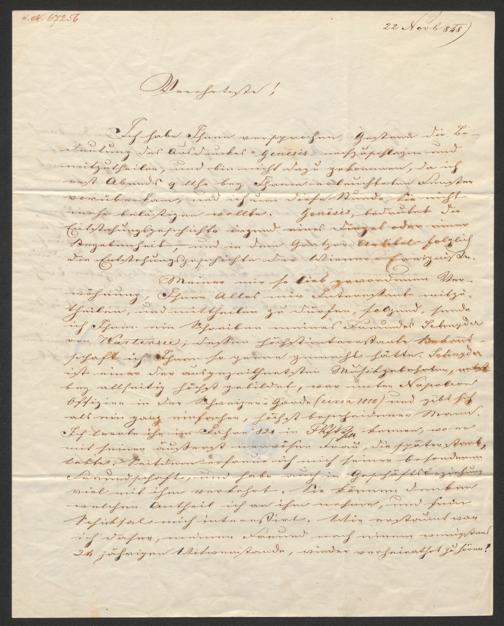 22 Novb 848)
Verehrteste!
Ich habe Ihnen versprochen, Gestern die Be-
deutung des Ausdruckes Genesis nachzuschlagen und
mitzutheilen, und bin nicht dazu gekommen, da ich
erst Abends 9 Uhr bey Ihnen erleuchteten Fenster
vorüber kam, und ich um diese Stunde Sie nicht
mehr belästigen wollte. Genesis, bedeutet die
Entstehungsgeschichte irgend eines Dinges oder einer
Begebenheit, und in dem Artikel folglich
die Entstehungsgeschichte der Wiener Ereignisse.
Meiner mir so lieb gewordenen Ge-
wöhnung, Ihnen Alles mir Interessante mitzu-
theilen, und mittheilen zu dürfen, folgend, sende
ich Ihnen ein Schreiben meines Freundes Schnyder
v. Wartensee, dessen höchst interessante Bekannt-
schaft ich Ihnen so gerne gemacht hätte. Schnyder
ist einer der ausgezeichnetsten Musikgelehrten,
bey allseitig höchst gebildet, war unter Napoleon
Offizier in der Schweizer-Garde (circa 1810) und gibt sich
als ein ganz einfacher, höchst bescheidener Mann.
Ich lernte ihn im Jahre 182 in kennen, wo er
mit seiner Frau, die später starb,
lebte. Seitdem erfreue ich mich seiner besonderen
Freundschaft, und habe auch in Geschäftsbeziehung
viel mit ihm verkehrt. Sie können denken
welchen Antheil ich an ihm nehme, und sein
Schicksal mich interessirt. Wie erstaunt war
ich daher, meinen Freund nach einem wenigstens
24 jährigen Witwerstande, wieder verheirathet zu hören!